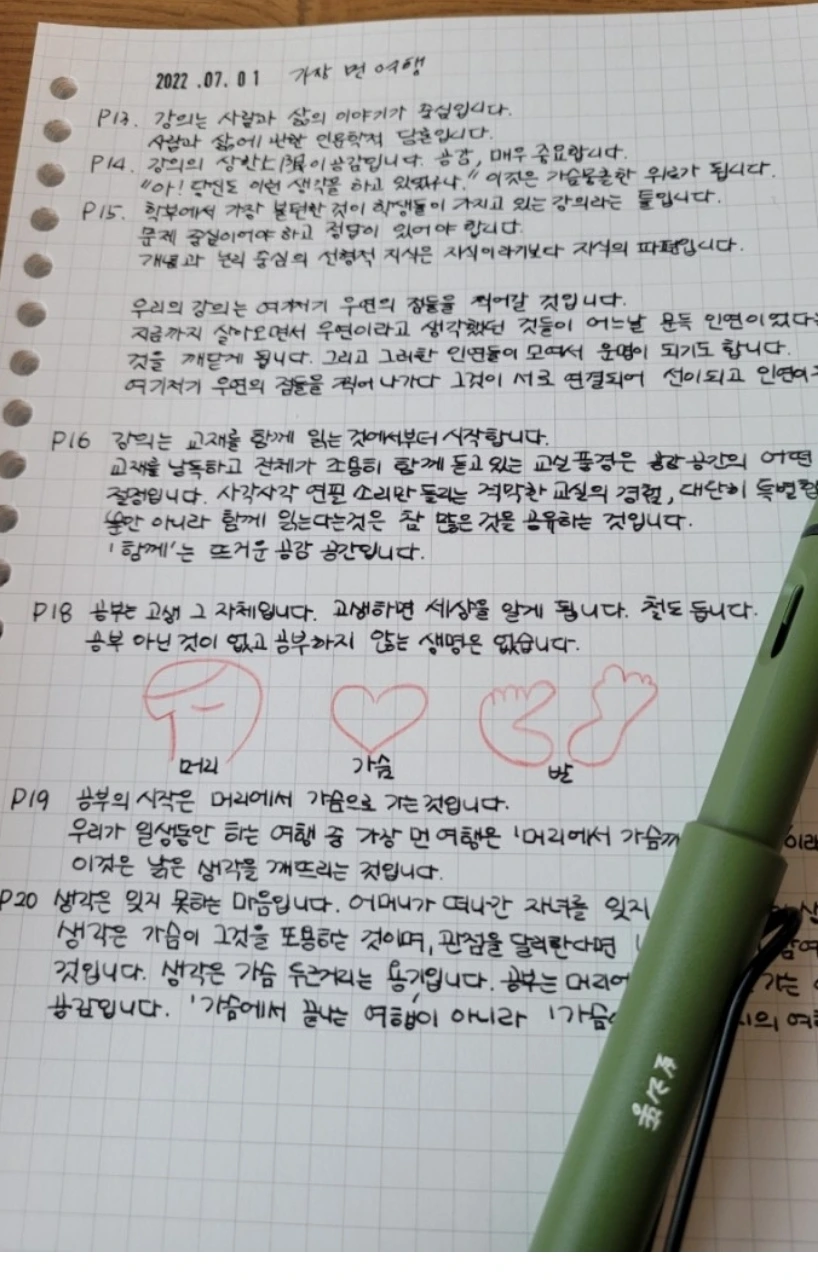 2022.07.01 가장 먼 여행
P13. 강의는 사람과 삶의 이야기가 중심입니다.
사람과 삶에 대한 인문학적 담론입니다.
P14. 강의의 상한上限이 공감입니다. 공감, 매우 중요합니다.
"아! 당신도 이런 생각을 하고 있었구나." 이것은 가슴뭉클한 위로가 됩니다.
P15. 학부에서 가장 불편한 것이 학생들이 가지고 있는 강의라는 틀입니다.
문제 중심이어야 하고 정답이 있어야 합니다.
개념과 논리 중심의 선형적 지식은 지식이라기보다 지식의 파편입니다.
우리의 강의는 여기저기 우연의 점들을 찍어갈 것입니다.
지금까지 살아오면서 우연이라고 생각했던 것들이 어느날 문득 인연이었다는
것을 깨닫게 됩니다. 그리고 그러한 인연들이 모여서 운명이 되기도 합니다.
여기저기 우연의 점들을 찍어 나가다 그것이 서로 연결되어 선이되고 인연이
P16 강의는 교재를 함께 읽는 것에서부터 시작합니다.
교재를 낭독하고 전체가 조용히 함께 듣고 있는 교실풍경은 공감공간의 어떤
절정입니다. 사각사각 연필 소리만 들리는 적막한 교실의 경험, 대단히 특별한
뿐만 아니라 함께 읽는다는것은 참 많은 것을 공유하는 것입니다.
'함께'는 뜨거운 공감 공간입니다.
P18 공부는 고생 그 자체입니다. 고생하면 세상을 알게 됩니다. 철도 듭니다.
공부 아닌 것이 없고 공부하지 않는 생명은 없습니다.
머리 가슴 발
P19 공부의 시작은 머리에서 가슴으로 가는 것입니다.
우리가 일생동안 하는 여행 중 가장 먼 여행은 '머리에서 가슴까
이것은 낡은 생각을 깨뜨리는 것입니다.
P20 생각은 잊지 못하는 마음입니다. 어머니가 떠나간 자녀를 잊지
생각은 가슴이 그것을 포용하는 것이며, 관점을 달리한다면
것입니다. 생각은 가슴 두근거리는 용기입니다. 공부는 머리에 가는
공감입니다. '가슴에서 끝나는 여행'이 아니라 '가슴에 지의 여행